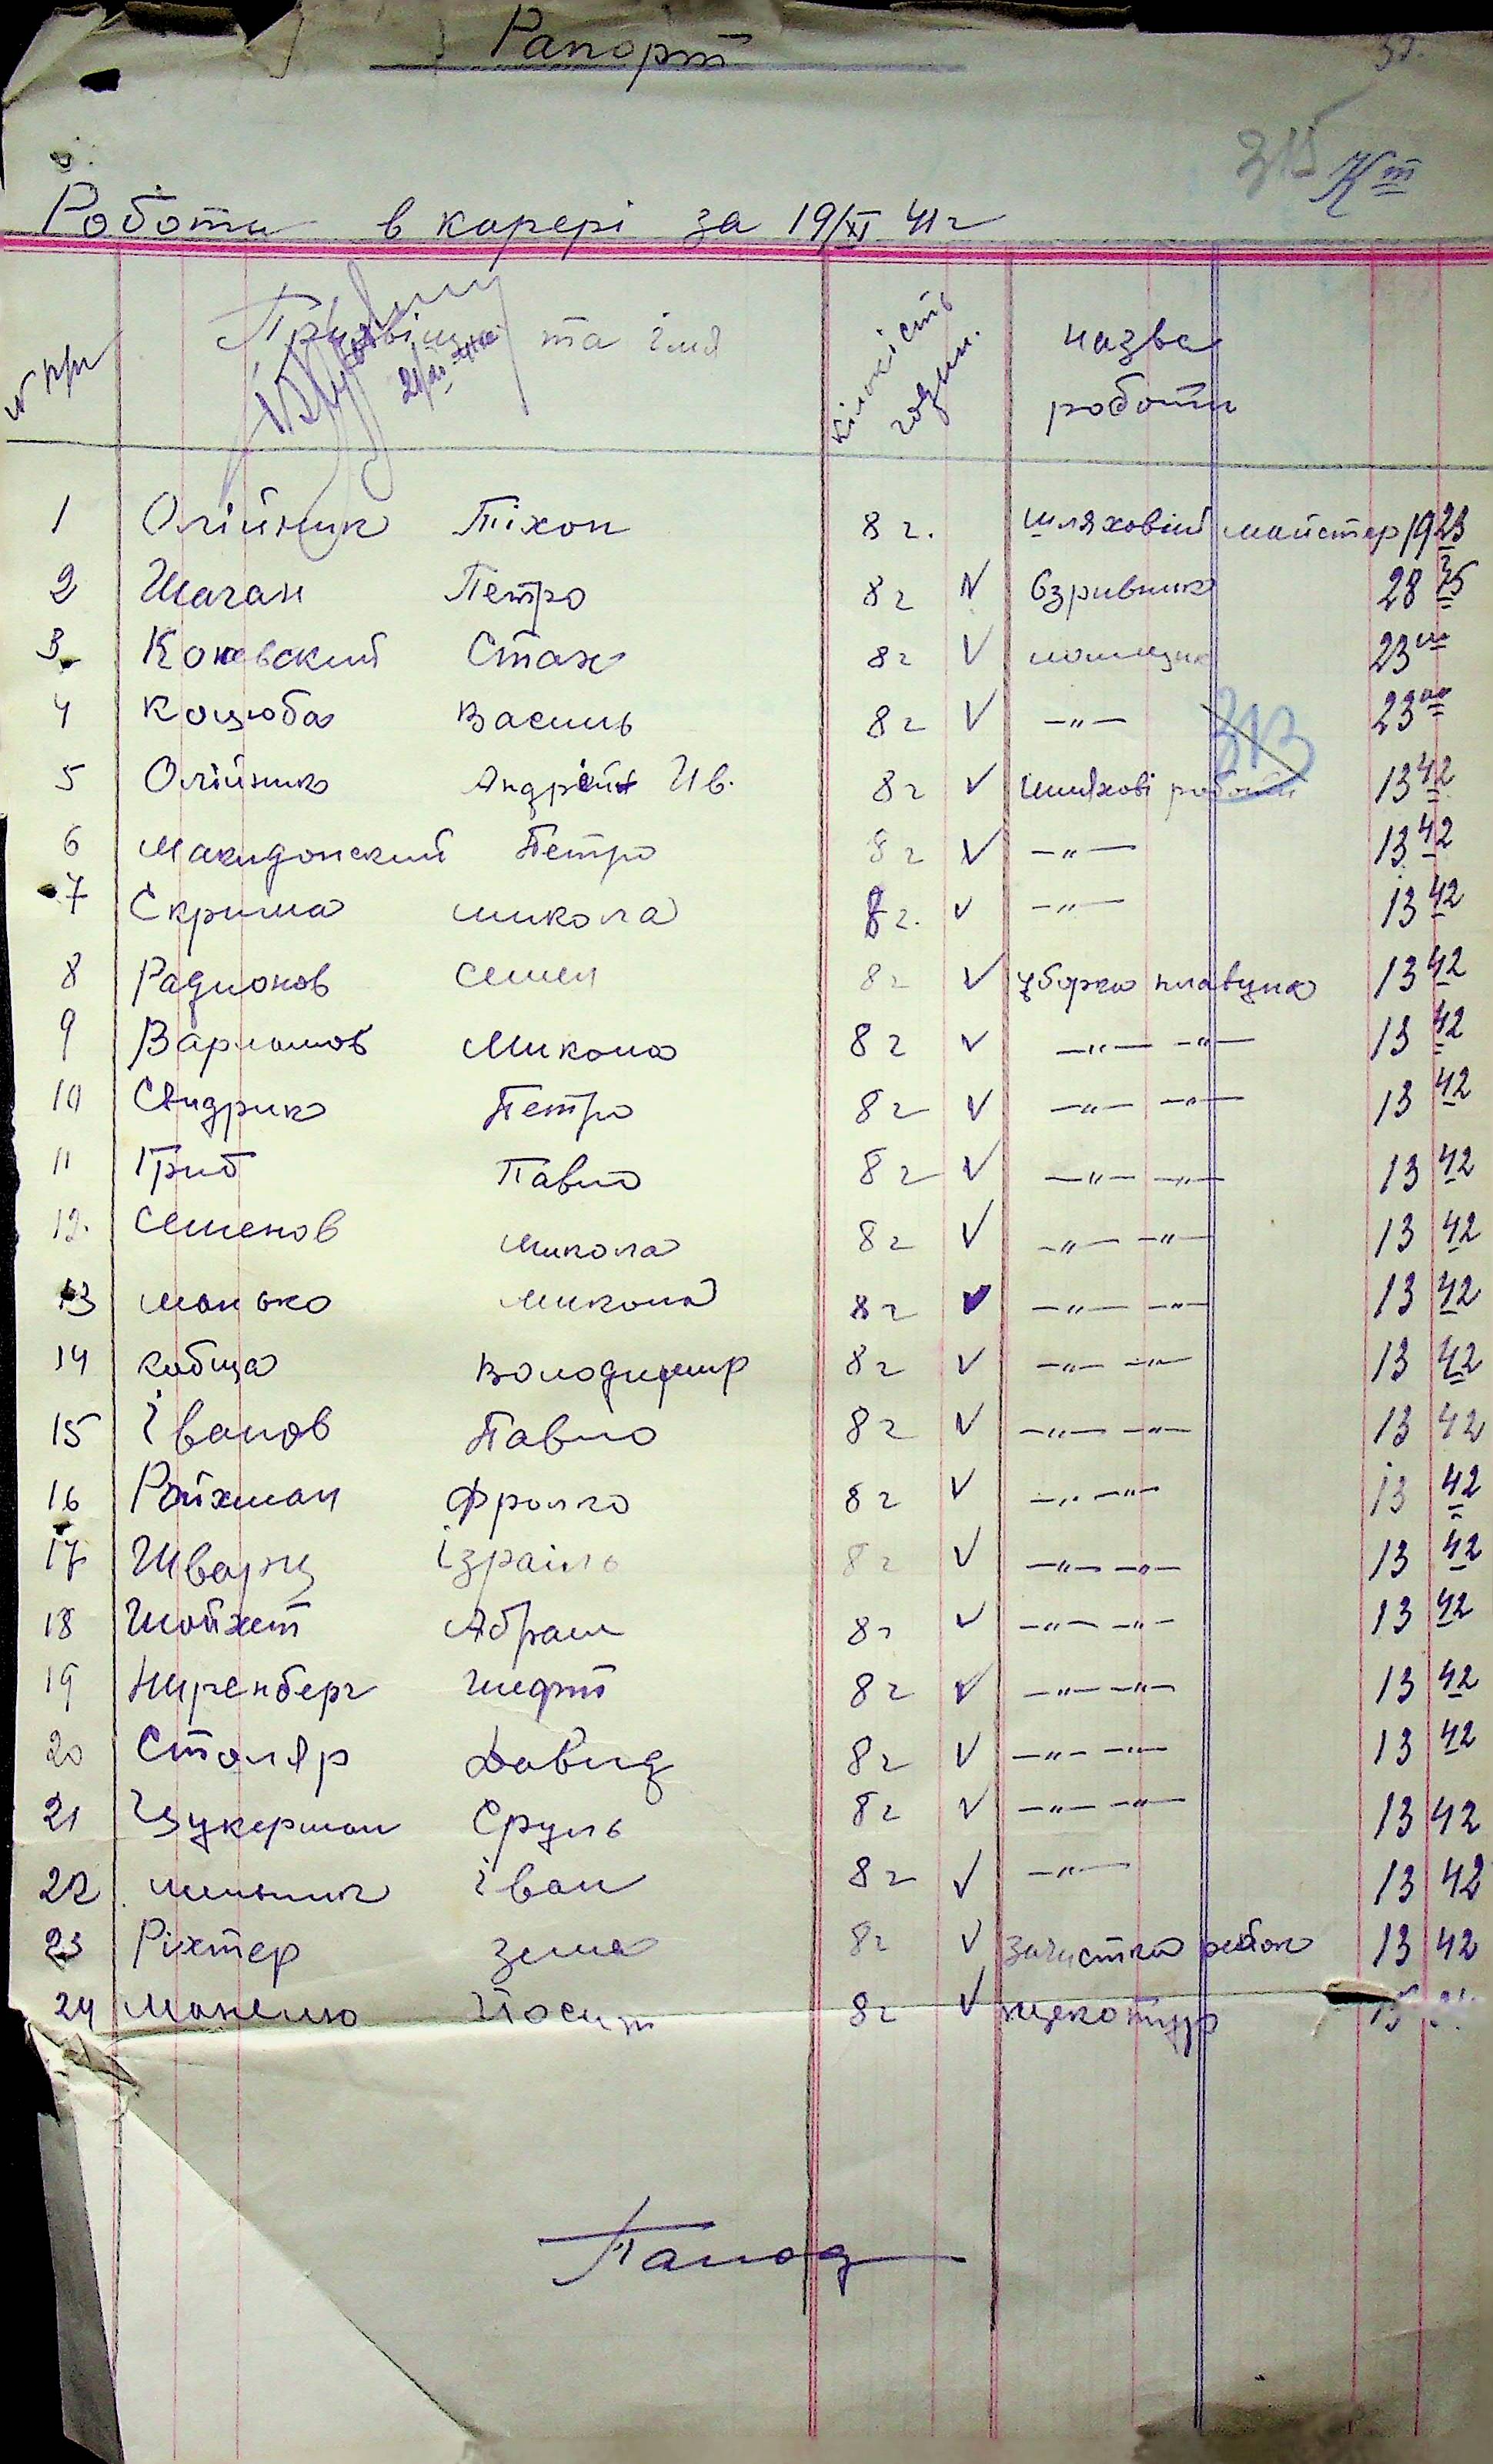 Рапорт
315 Кт
Роботи в карері за 19/XI 41 г
№ п/п Прізвіще та імя кількість годин. назва роботи
21/XI
1 Олійник Тіхон 8 г. шляховій майстер 19 23
2 Шаган Петро 8 г V взривник 28 75
3 Коневский Стах 8 г V помощник 23 00
4 Коцюба Василь 8 г V —"— 23 00
313
5 Олійник Андрій Ив. 8 г V шляхові роботи 13 42
6 Макидонский Петро 8 г V —"— 13 42
7 Скрипка микола 8 г. V —"— 13 42
8 Радионов семен 8 г V уборка плавунка 13 42
9 Варламов Микола 8 г V —"— —"— 13 42
10 Свидрик Петро 8 г V —"— —"— 13 42
11 Гриб Павло 8 г V —"— —"— 13 42
12. семенов микола 8 г V —"— —"— 13 42
13 монько микола 8 г V —"— —"— 13 42
14 кобца Володимир 8 г V —"— —"— 13 42
15 Іванов Павло 8 г V —"— —"— 13 42
16 Ройхман Фроико 8 г V —"— —"— 13 42
17 Шварц ізраіль 8 г V —"— —"— 13 42
18 Шойхет Абрам 8 г V —"— —"— 13 42
19 Ниренберг 8 г V —"— —"— 13 42
20 Столяр Давид 8 г V —"— —"— 13 42
21 Цукерман Сруль 8 г V —"— —"— 13 42
22 мильник іван 8 г V —"— 13 42
23 Ріхтер зема 8 г V Зачистка 13 42
24 Йосип 8 г V